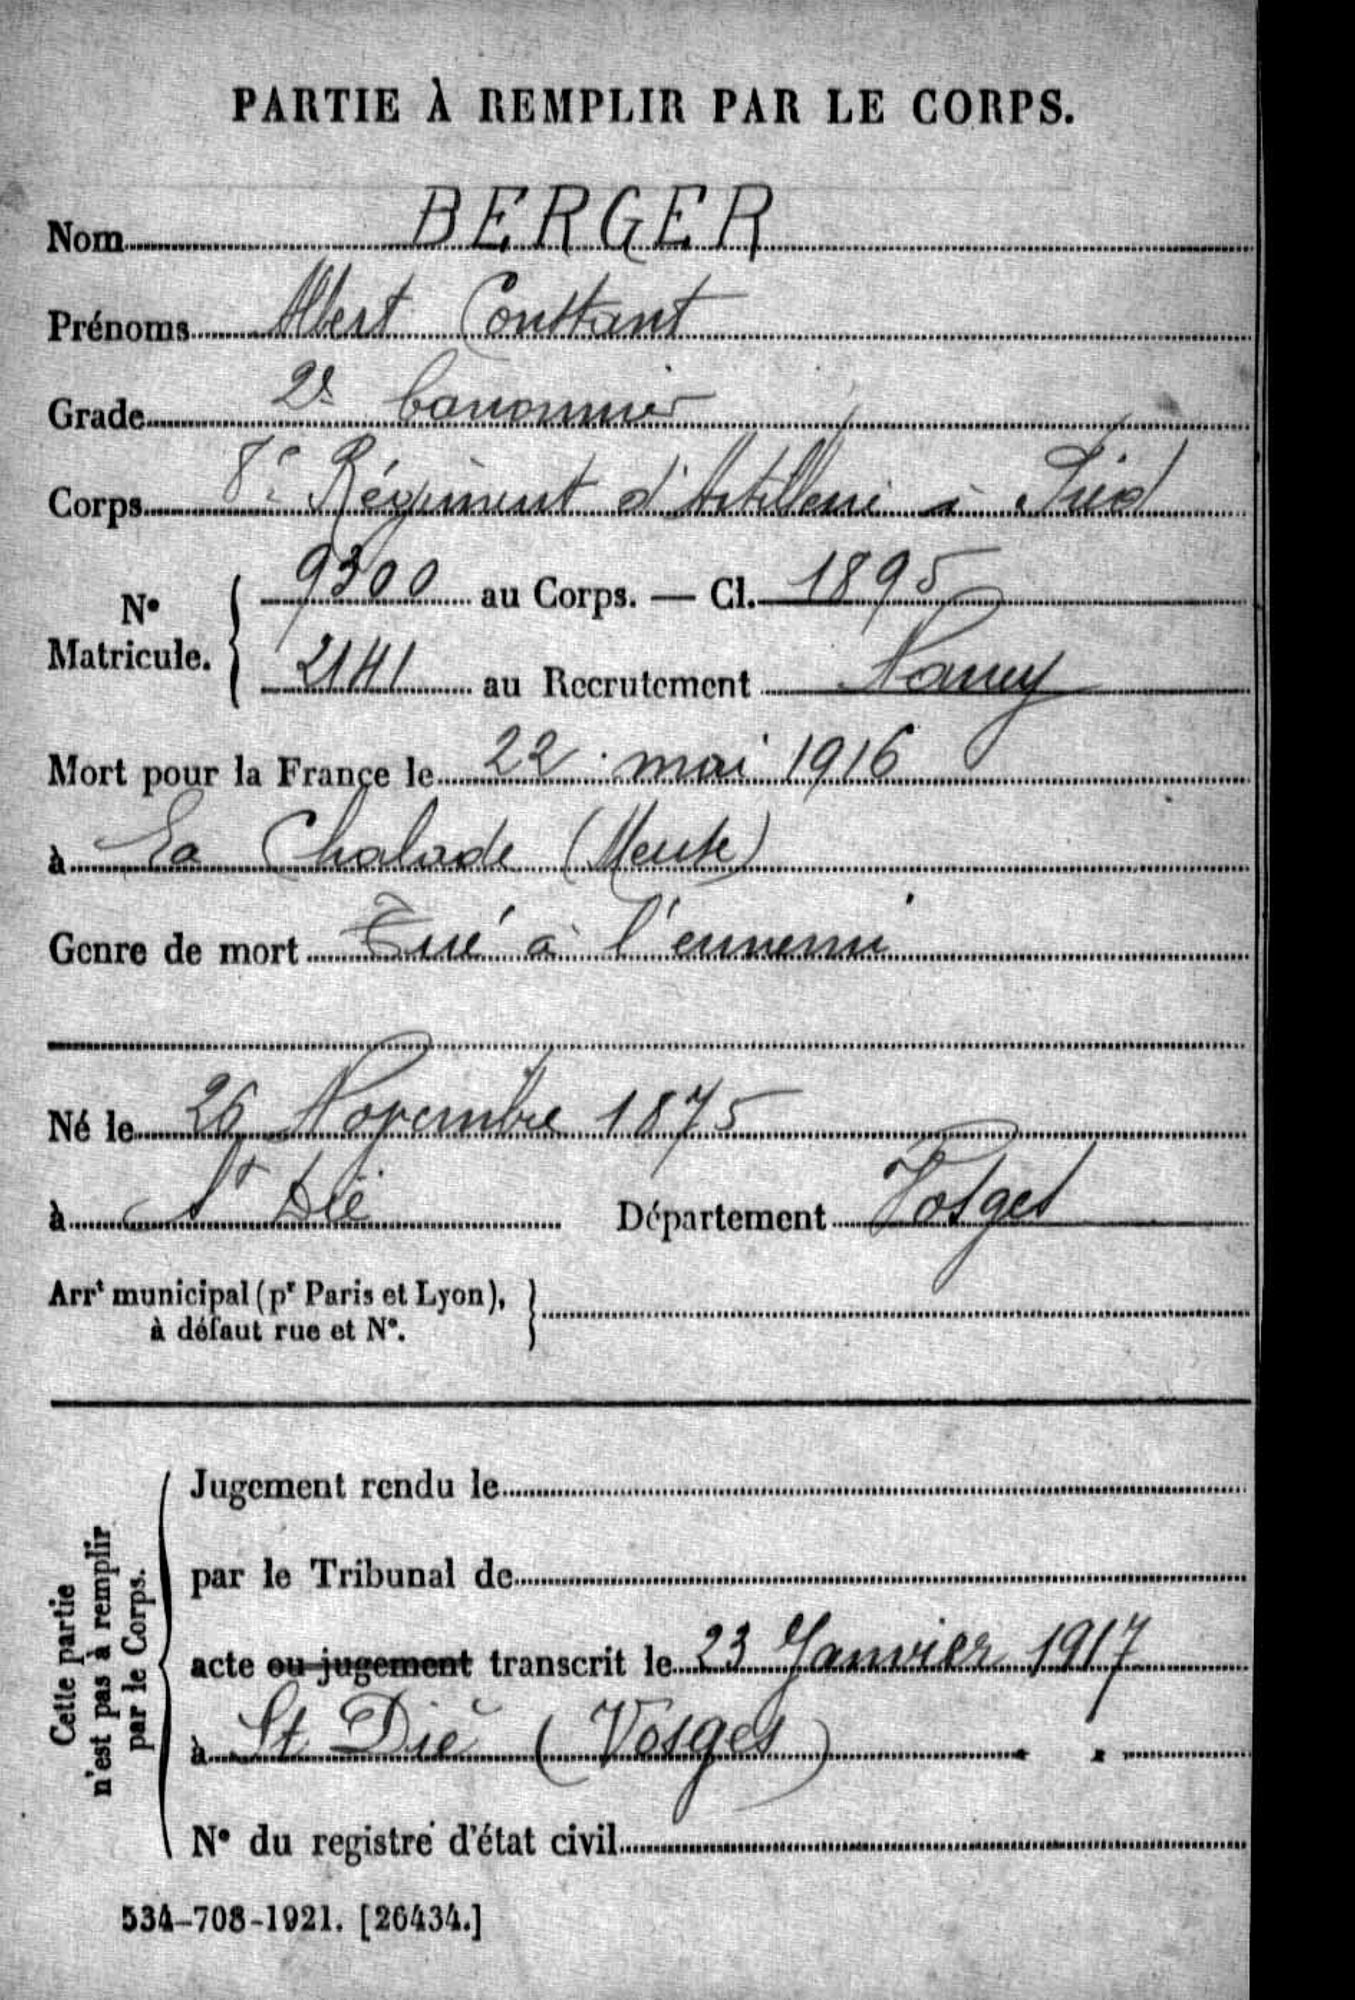 PARTIE À REMPLIR PAR LE CORPS.
Nom BERGER
Prénoms Albert Constant
Grade 2e Canonnier
Corps 8e Régiment d'Artillerie à Pied
N° Matricule. 9300 au Corps. — Cl. 1895
2141 au Recrutement Nancy
Mort pour la France le 22 mai 1916
à La Chalade (Meuse)
Genre de mort Tué à l'ennemi
Né le 26 Novembre 1875
à St Dié Département Vosges
Arrt municipal (pr Paris et Lyon),
à défaut rue et N°.
Cette partie
n'est pas à remplir
par le Corps.
Jugement rendu le
par le Tribunal de
acte ou jugement transcrit le 23 Janvier 1917
à St Dié (Vosges)
N° du registre d'état civil
534-708-1921. [26434.]